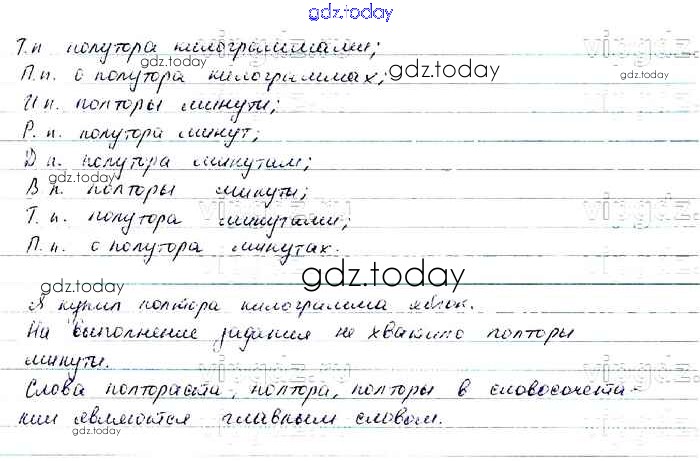 gdz.today
Т.п. полутора килограммами;
П.п. о полутора килограммах;
gdz.today
gdz.today
И п. полторы минуты;
Р. п. полутора минут;
gdz.today
Д п. полутора минутам;
gdz.today
В п. полторы минуты;
Т. п. полутора минутами;
gdz.today
П. п. о полутора минутах.
gdz.today
gdz.today
Я купил полтора килограмма яблок.
На выполнение задания не хватило полторы
минуты.
gdz.today
Слова полтораста, полтора, полторы в словосочета-
нии являются главным словом.
gdz.today
gdz.today